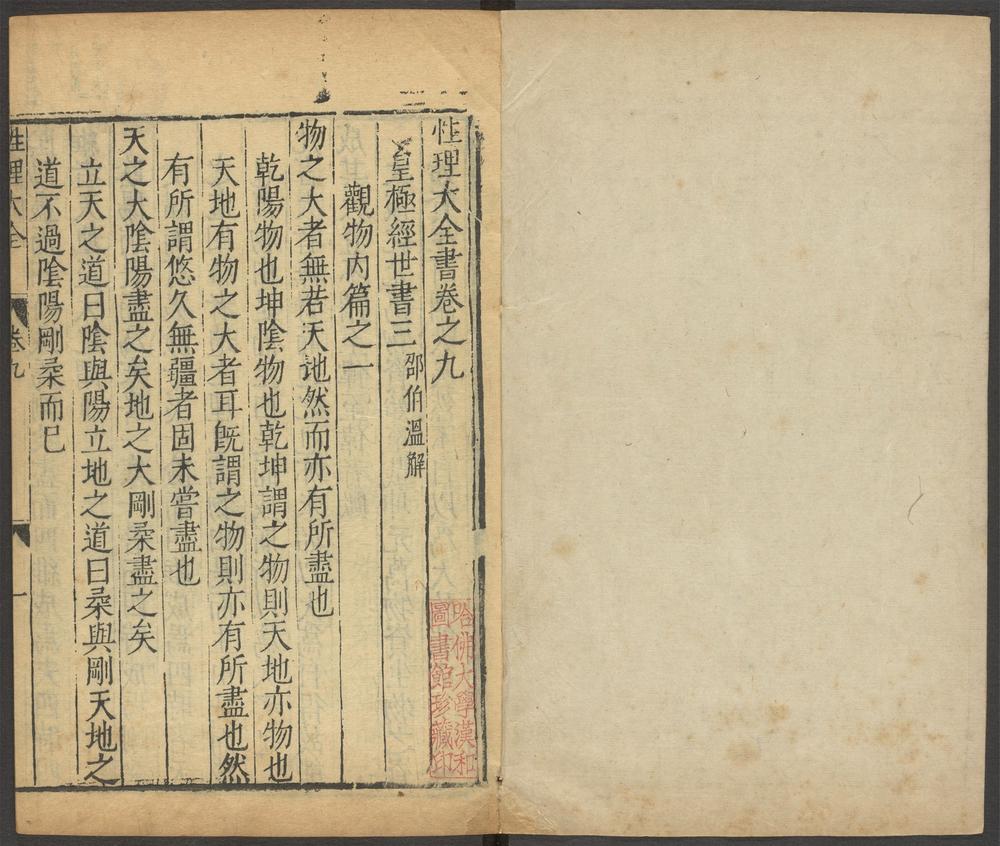 性理大全書卷之九
皇極經世書三 邵伯溫解
觀物內篇之一
物之大者無若天地然而亦有所盡也
乾陽物也坤陰物也乾坤謂之物則天地亦物也
天地有物之大者耳旣謂之物則亦有所盡也然
有所謂悠久無疆者固未嘗盡也
天之大陰陽盡之矣地之大剛柔盡之矣
立天之道曰陰與陽立地之道曰柔與剛天地之
道不過陰陽剛柔而已
性理大全 卷九 一
哈佛大學漢和
圖書館珍藏印